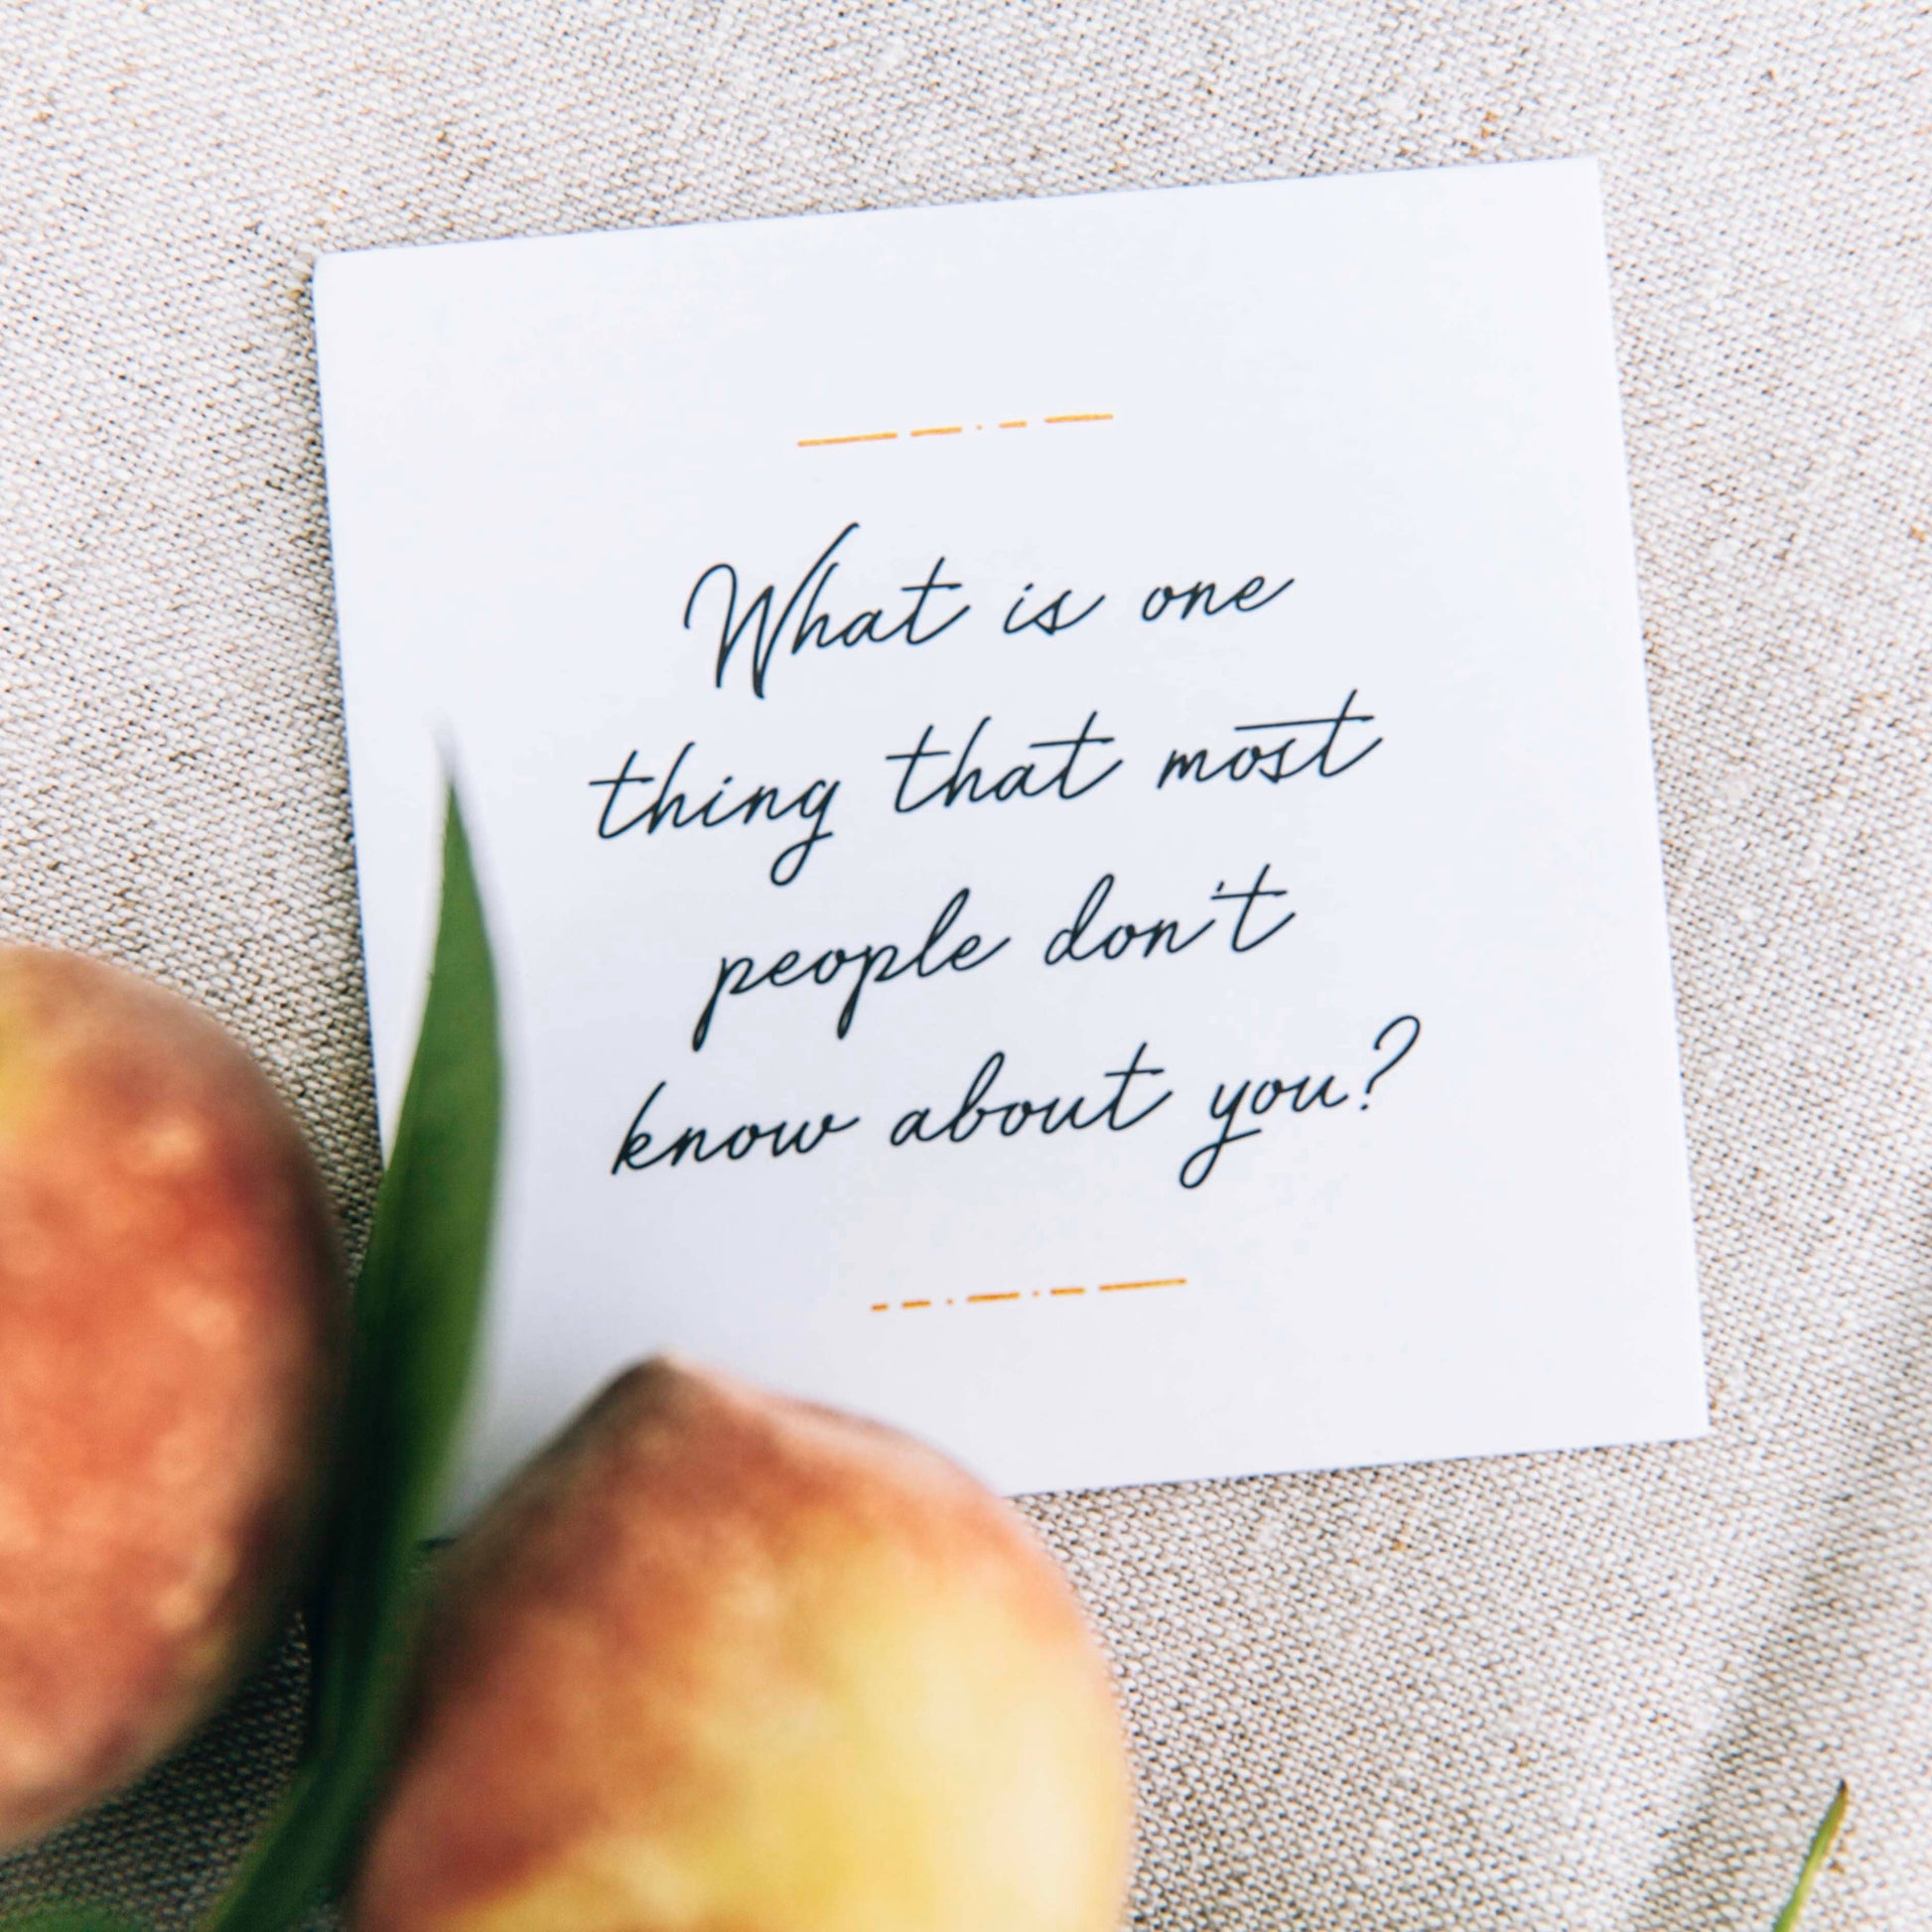 What is one
thing that most
people don't
know about you?